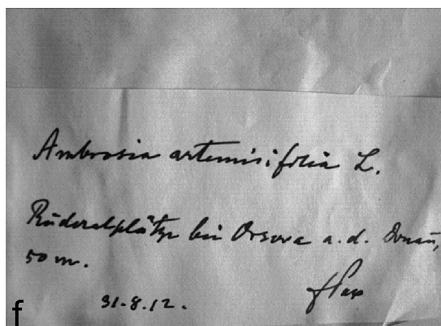 Ambrosia artemisifolia L.
Ruderalplätze bei Orsova a. d. Donau,
50 m.
31.8.12. FPax
f